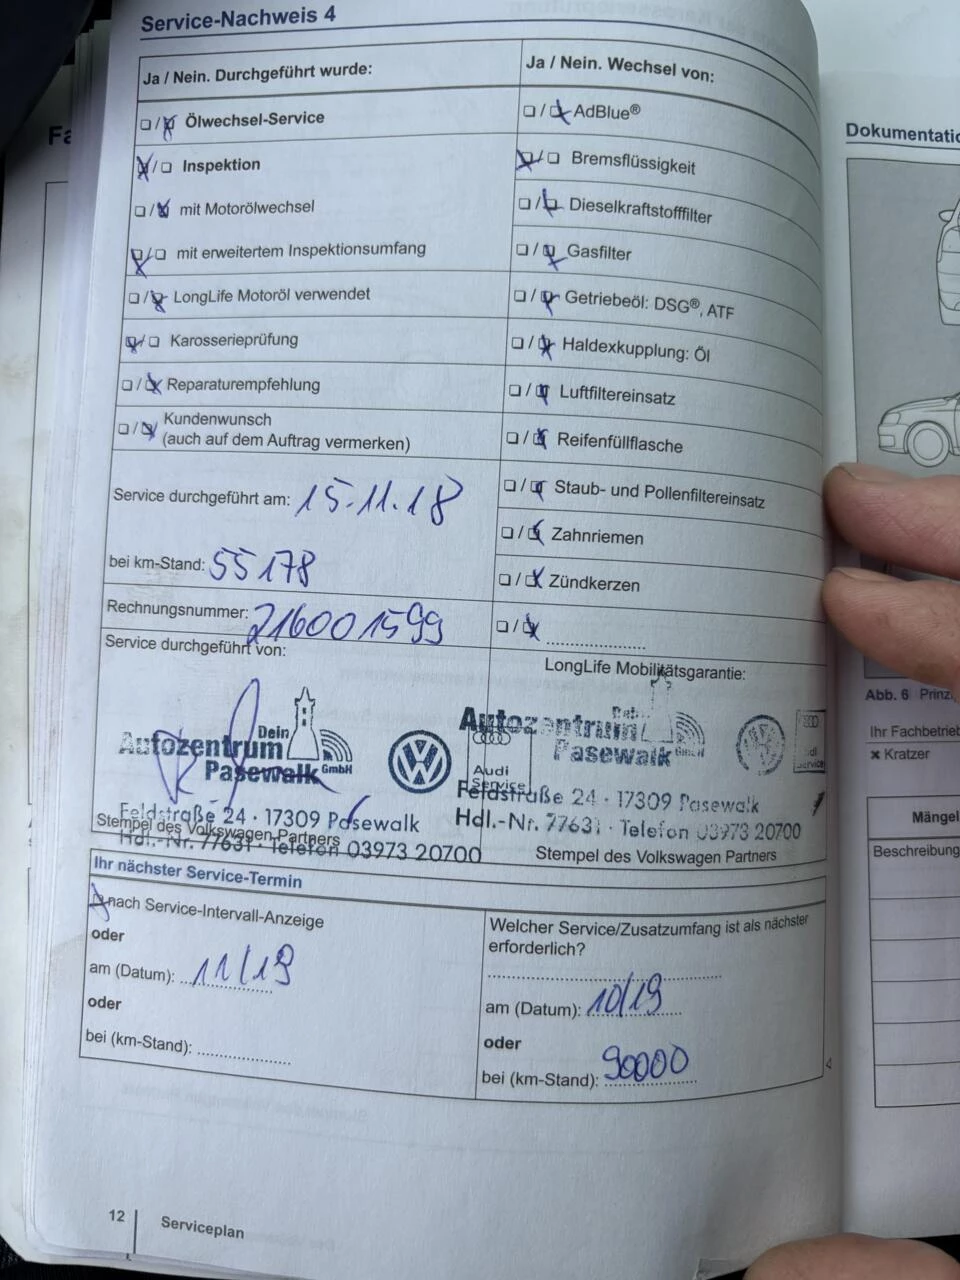 Service-Nachweis 4
Ja / Nein. Durchgeführt wurde:
Ölwechsel-Service
Inspektion
mit Motorölwechsel
mit erweitertem Inspektionsumfang
LongLife Motoröl verwendet
Karosserieprüfung
Reparaturempfehlung
Kundenwunsch
(auch auf dem Auftrag vermerken)
Service durchgeführt am: 15.11.18
bei km-Stand: 55178
Rechnungsnummer: 2160001599
Service durchgeführt von:
Dein
Autozentrum
Pasewalk GmbH
Feldstraße 24 · 17309 Pasewalk
Hdl.-Nr. 77631 · Telefon 03973 20700
Stempel des Volkswagen Partners
Ja / Nein. Wechsel von:
AdBlue®
Bremsflüssigkeit
Dieselkraftstofffilter
Gasfilter
Getriebeöl: DSG®, ATF
Haldexkupplung: Öl
Luftfiltereinsatz
Reifenfüllflasche
Staub- und Pollenfiltereinsatz
Zahnriemen
Zündkerzen
LongLife Mobilitätsgarantie:
Autozentrum
Pasewalk GmbH
Audi
Service
Feldstraße 24 · 17309 Pasewalk
Hdl.-Nr. 77631 · Telefon 03973 20700
Stempel des Volkswagen Partners
Ihr nächster Service-Termin
nach Service-Intervall-Anzeige
oder
am (Datum): 11/19
oder
bei (km-Stand):
Welcher Service/Zusatzumfang ist als nächster
erforderlich?
am (Datum): 10/19
oder
bei (km-Stand): 90000
12
Serviceplan
Abb. 6
Ihr Fachbetrieb
× Kratzer
Mängel
Beschreibung